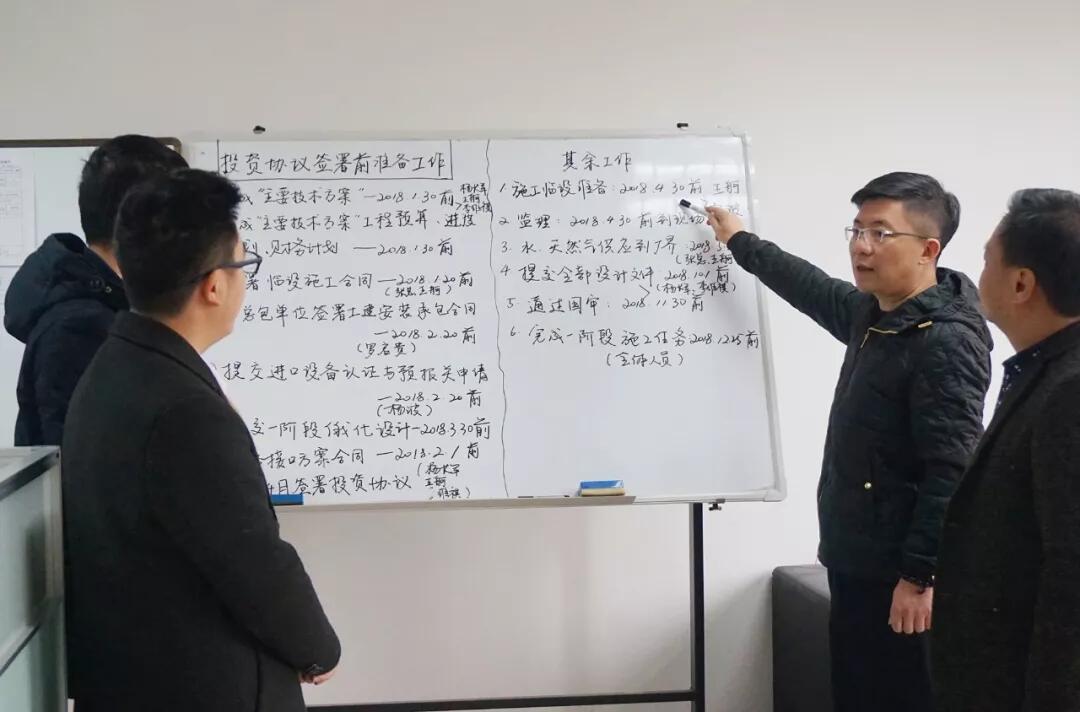 投资协议签署前准备工作
成“主要技术方案”—2018.1.30前 杨长军 王栩
成“主要技术方案”工程预算、进度
划、财务计划 —— 2018.1.30前
署临设施工合同 —2018.1.20前
(张总、王栩)
总包单位签署土建安装承包合同
—2018.2.20前
提交进口设备认证与预报关申请
—2018.2.20前
(杨波)
交一阶段俄化设计—2018.3.30前
接口方案合同 —2018.2.1前
签署投资协议
其余工作
1 施工临设准备:2018.4.30前 王栩
2 监理:2018.4.30前到现场
3. 水、天然气供应到厂界:2018.
(张总、王栩)
4 提交全部设计文件 2018.10.1前
5. 通过国审:2018.11.30前
6. 完成一阶段施工任务2018.12.25前
(全体人员)